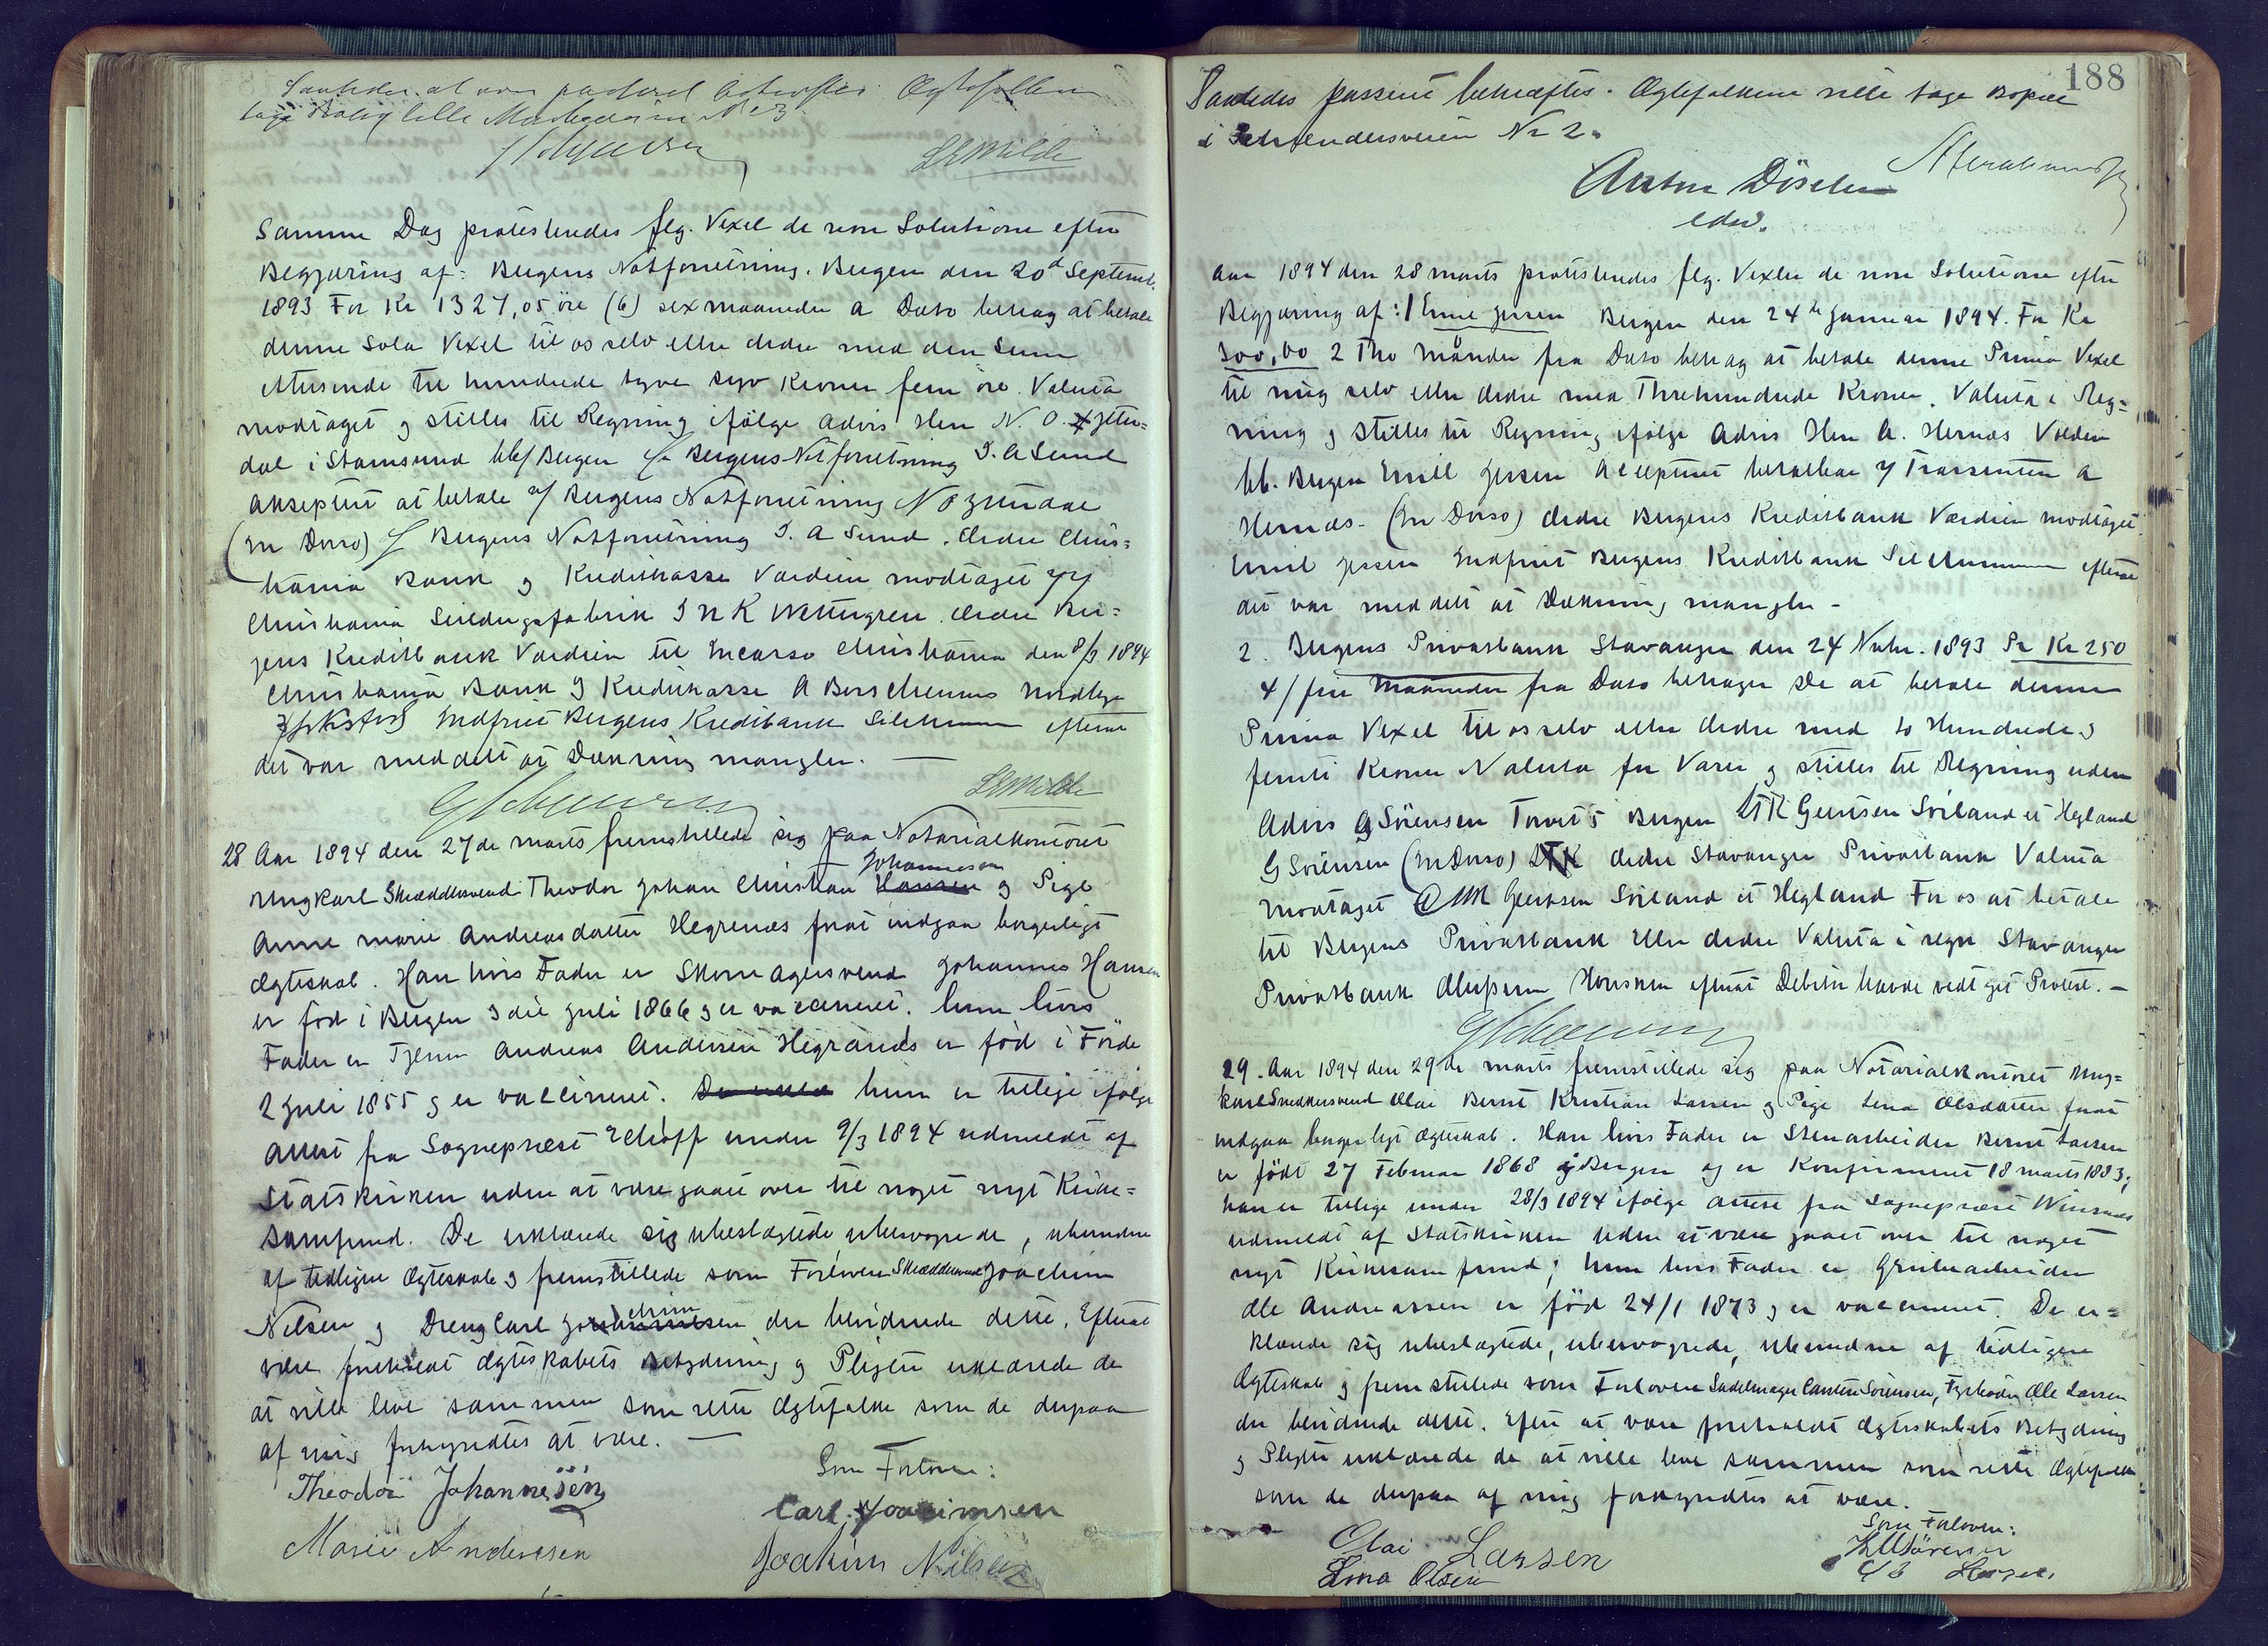 Saaledes at være passeret bekræftes. Ægtefolkene
tage Bolig lille Markeveien No 3
Samme Dag protesteredes flg. Vexel de non Solutione efter
Begjæring af: Bergens Notforretning. Bergen den 20d Septemb.
1893 For Kr 1327,05 öre (6) sex maaneder a Dato behag at betale
denne Sola Vexel til os selv eller Ordre med den Sum
ettusinde tre hundrede tyve syv Kroner fem öre. Valuta
modtaget og stilles til Regning ifölge advis Herr N. O.
dal i Stamsund bbf Bergen f Bergens Notforretning I. A Sund
akseptert at betale f Bergens Notforretning
(In Dorso) f Bergens Notforretning I. A Sund. Ordre Chris=
tiania Bank og Kreditkasse Værdien modtaget
Christiania Seildugsfabrik I N K Wettergren. Ordre Ber=
gens Kreditbank Værdien til Incasso Christiania den 8/3 1894
Christiania Bank og Kreditkasse
Indfriet Bergens Kreditbank efterat
det var meddelt at Dækning mangler. —
28 Aar 1894 den 27de marts fremstillede sig paa Notarialkontoret
Johannessen
Ungkarl Skræddersvend Theodor Johan Christian Hansen og Pige
Anne Marie Andreasdatter Hegrenæs forat indgaa borgerligt
Ægteskab. Han hvis Fader er Skomagersvend Johannes Hansen
er fød i Bergen 3die Juli 1866 og er vaccineret. hun hvis
Fader er Tjener Andreas Andersen Hegrænæs er fød i Förde
2 Juli 1855 og er vaccineret. hun er tillige ifölge
Attest fra Sognepræst under 9/3 1894 udmeldt af
Statskirken uden at være gaaet over til noget nyt Kirke=
samfund. De erklærede sig ubeslægtede ubesvogrede, ubundne
af tidligere Ægteskab og fremstillede som Forlovere Skræddersvend Joachim
Nilsen og Dreng Carl Joachimsen der bevidnede dette. Efterat
være foreholdt Ægteskabets Betydning og Pligter erklærede de
at ville leve sammen som rette Ægtefolke som de derpaa
af mig forkyndtes at være. —
Som Forlovere:
Theodor Johannesen
Carl. Joacimsen
Marie Andersen
Joakim Nilsen
188
Saaledes passeret bekræftes. Ægtefolkene ville tage Bopæl
i No 2.
Anton Döscher
edsv.
Aar 1894 den 28 marts protesteredes flg. Vexler de non Solutione efter
Begjæring af: 1 Emil Jessen Bergen den 24de Januar 1894. For Kr
300,00 2 Tho Maander fra Dato behag at betale denne Prima Vexel
til mig selv eller Ordre med Threhundrede Kroner. Valuta i Reg=
ning og stilles til Regning ifölge Advis Herr A. Hernæs Volden
bb. Bergen Emil Jessen Accepteret betalbar Trassenten A
Hernæs. (In Dorso) Ordre Bergens Kreditbank Værdien modtaget.
Emil Jessen Indfriet Bergens Kreditbank efterat
det var meddelt at Dækning mangler —
2. Bergens Privatbank Stavanger den 24 Novbr. 1893 Pr Kr 250
4/fire Maaneder fra Dato behager De at betale denne
Prima Vexel til os selv eller Ordre med to Hundrede og
femti Kroner Valuta for Varer og stilles til Regning uden
Advis G Sörensen Torvet 5 Bergen Geertsen Soiland et Hegland
G Sörensen (In Dorso) Ordre Stavanger Privatbank Valuta
modtaget Geertsen Soiland et Hegland For os at betale
til Bergens Privatbank eller Ordre Valuta i regn Stavanger
Privatbank efterat Debitor havde vedtaget Protest. —
29. Aar 1894 den 29de marts fremstillede sig paa Notarialkontoret Ung=
karl Snedkersvend Olai Bernt Kristian Larsen og Pige Lina Olsdatter forat
indgaa borgerligt Ægteskab. Han hvis Fader er Stenarbeider Bernt Larsen
er födt 27 Februar 1868 i Bergen og er Konfirmeret 18 marts 1883;
han er tillige under 28/3 1894 ifölge Attest fra Sognepræst Wiesnæs
udmeldt af Statskirken uden at være gaaet over til noget
nyt Kirkesamfund; hun hvis Fader er Grubearbeider
Ole Andreassen er född 24/1 1873 og er vaccineret. De er=
klærede sig ubeslægtede, ubesvogrede, ubundne af tidligere
Ægteskab og fremstillede som Forlovere Sadelmager Carsten Sörensen, Fyrböder Ole Larsen
der bevidnede dette. Efter at være foreholdt Ægteskabets Betydning
og Pligter erklærede de at ville leve sammen som rette Ægtefolk
som de derpaa af mig forkyndtes at være.
Som Forlovere:
Olai Larsen
Lina Olsen
Sörensen
Larsen